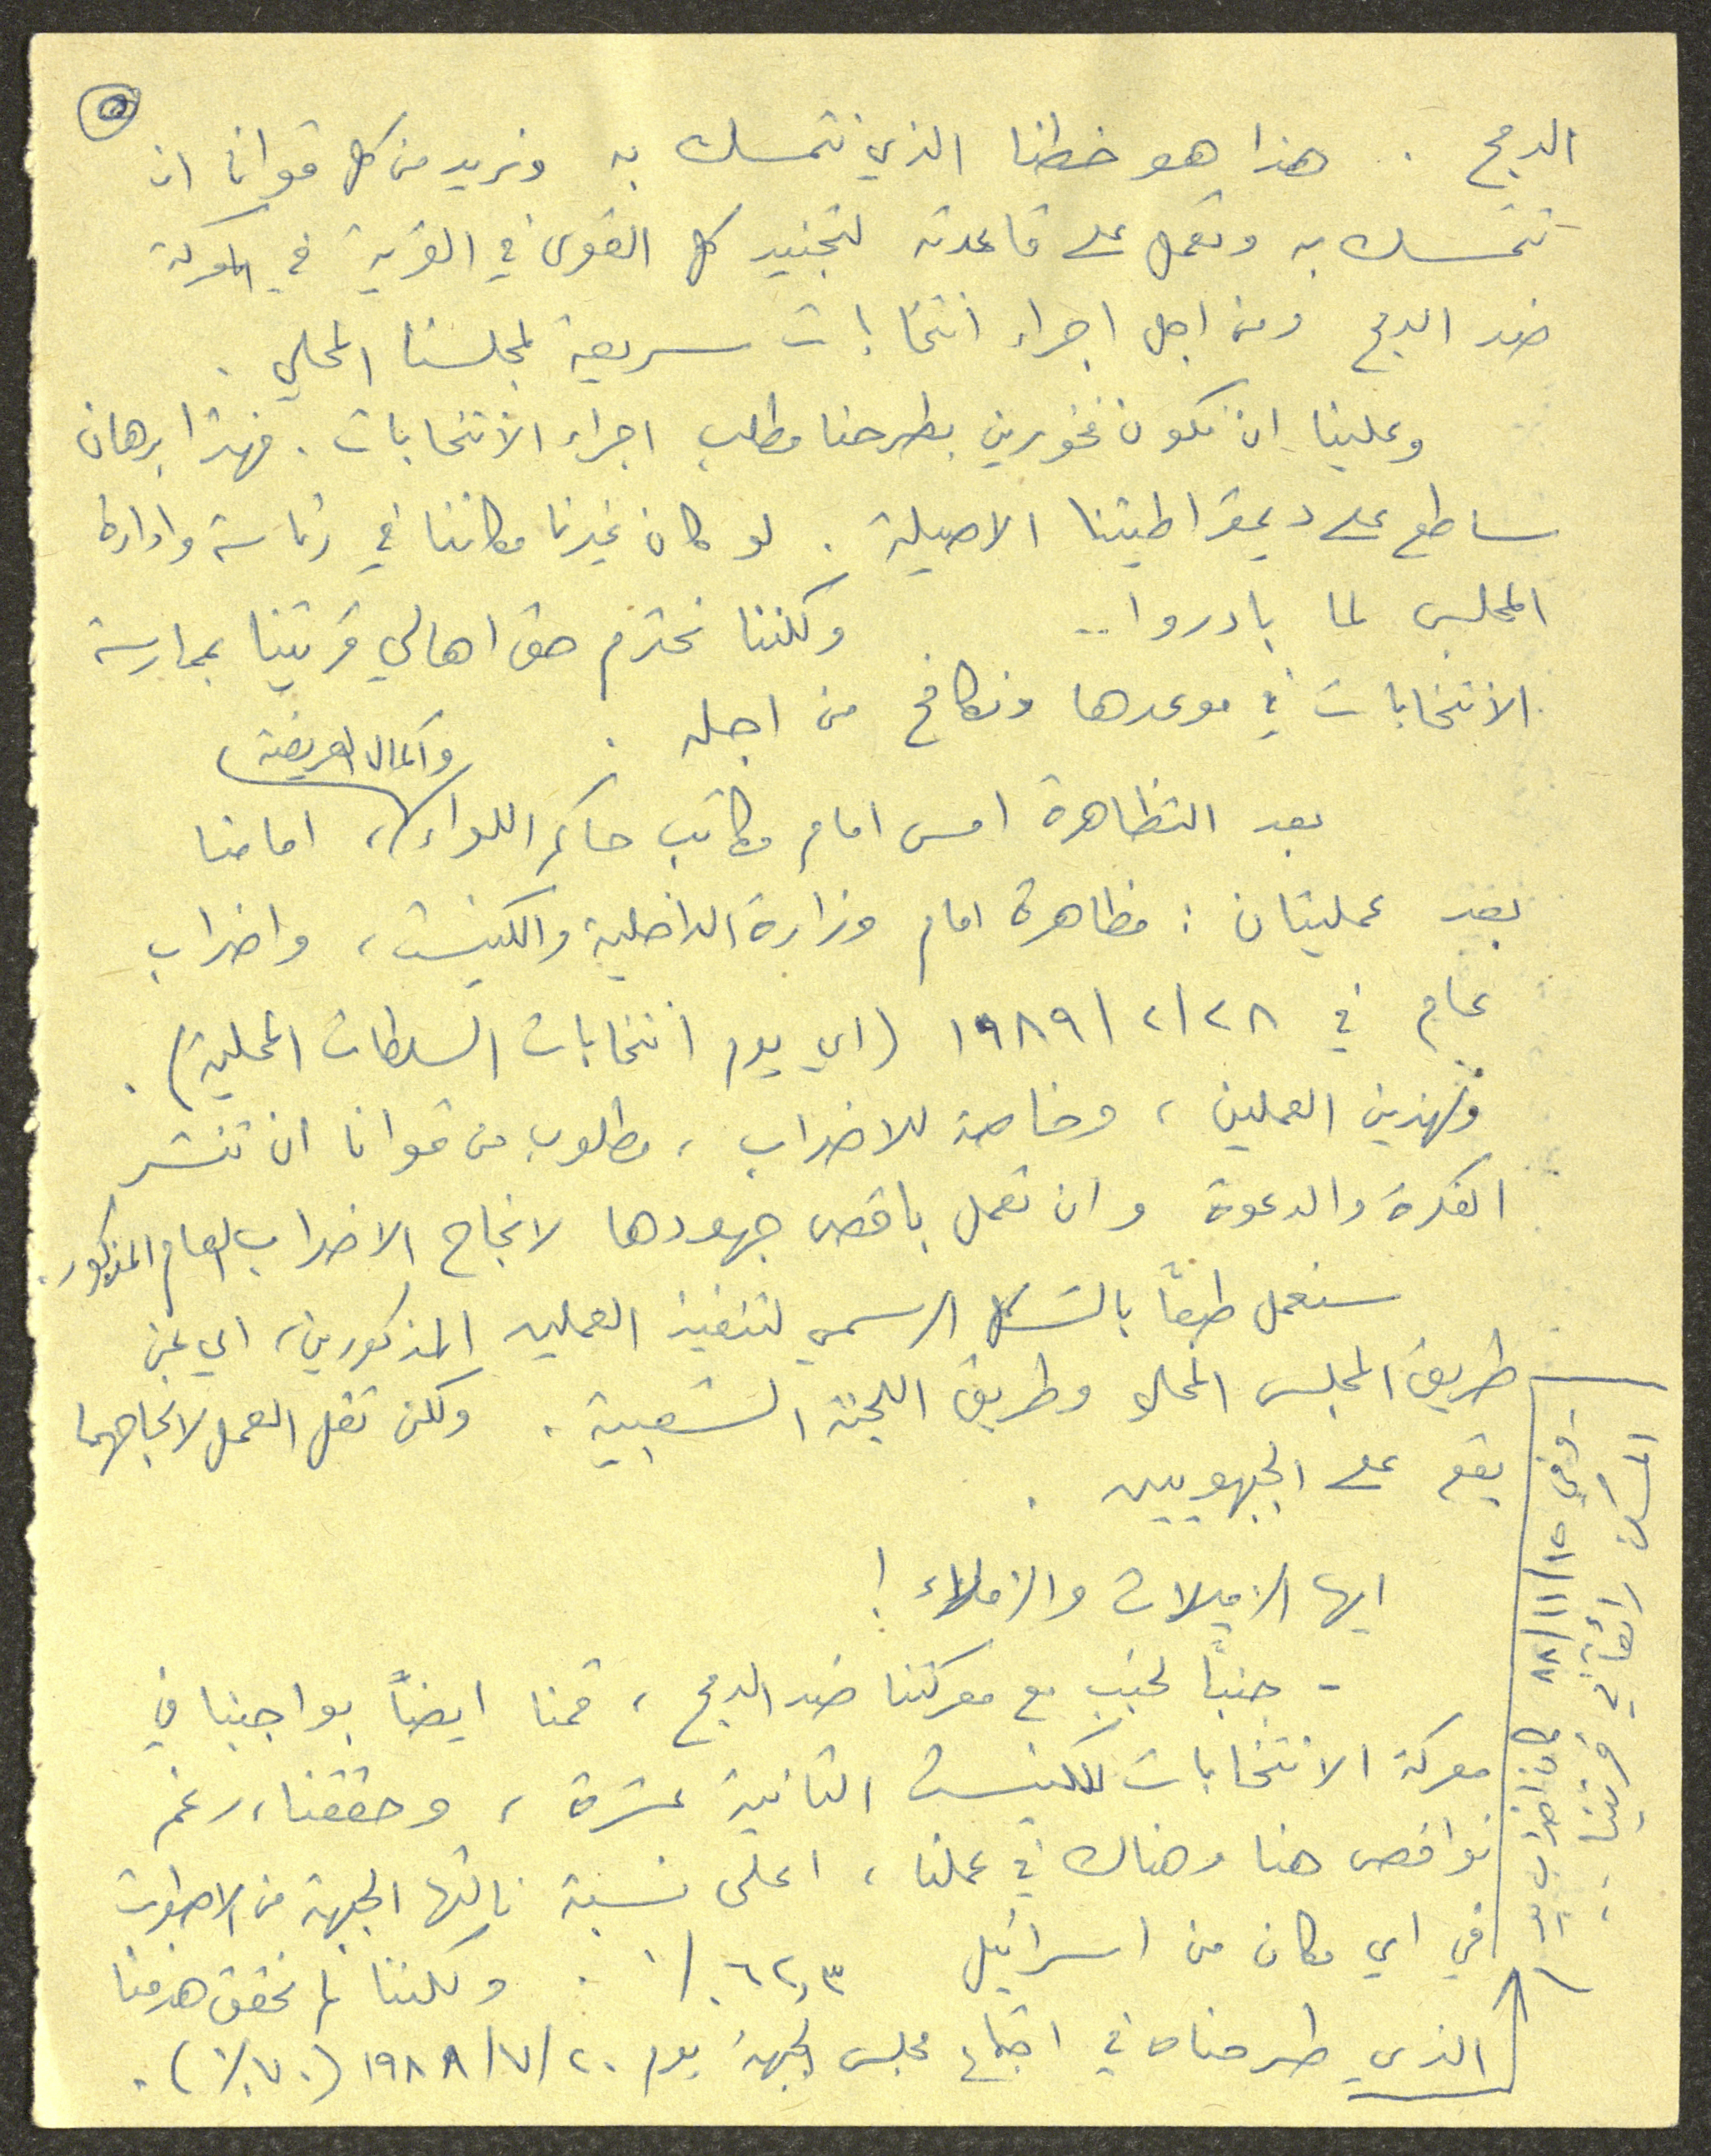 ٥
الدمج . هذا هو خطنا الذي نتمسك به ونريد من كل قوانا ان
تتمسك به وتعمل على قاعدته لتجنيد كل القوى في القرية في المعركة
ضد الدمج ومن اجل اجراء انتخابات سريعة لمجلسنا المحلي .
وعلينا ان نكون فخورين بطرحنا مطلب اجراء الانتخابات . فهذا برهان
ساطع على ديمقراطيتنا الاصيلة . لو كان غيرنا مكاننا في رئاسة وادارة
المجلس لما بادروا .. ولكننا نحترم حق اهالي قريتنا بممارسة
الانتخابات في موعدها ونكافح من اجله .
بعد التظاهرة امس امام مكاتب حاكم اللواء واكمال العريضة ، امامنا
بعد عمليتان : مظاهرة امام وزارة الداخلية والكنيست ، واضراب
عام في ٢٨/٢/١٩٨٩ (اي يوم انتخابات السلطات المحلية) .
ولهذين العملين ، وخاصة للاضراب ، مطلوب من قوانا ان تنشر
الفكرة والدعوة وان تعمل باقصى جهودها لانجاح الاضراب العام المذكور .
سنعمل طبعًا بالشكل الرسمي لتنفيذ العملين المذكورين ، اي عن
طريق المجلس المحلي وطريق اللجنة الشعبية . ولكن ثقل العمل لانجاحهما
يقع على الجبهويين .
ايها الزميلات والزملاء !
- جنبًا لجنب مع معركتنا ضد الدمج ، قمنا ايضًا بواجبنا في
معركة الانتخابات للكنيست الثانية عشرة ، وحققنا ، رغم
نواقص هنا وهناك في عملنا ، اعلى نسبة نالتها الجبهة من الاصوات
في اي مكان من اسرائيل ٦٢,٣٪ . ولكننا لم نحقق هدفنا
الذي طرحناه في اجتماع مجلس الجبهة يوم ٢٠/٧/١٩٨٨ (٧٠٪) .
وفي ١٥/١١/٨٨ كان اضراب
رائعا في قريتنا .